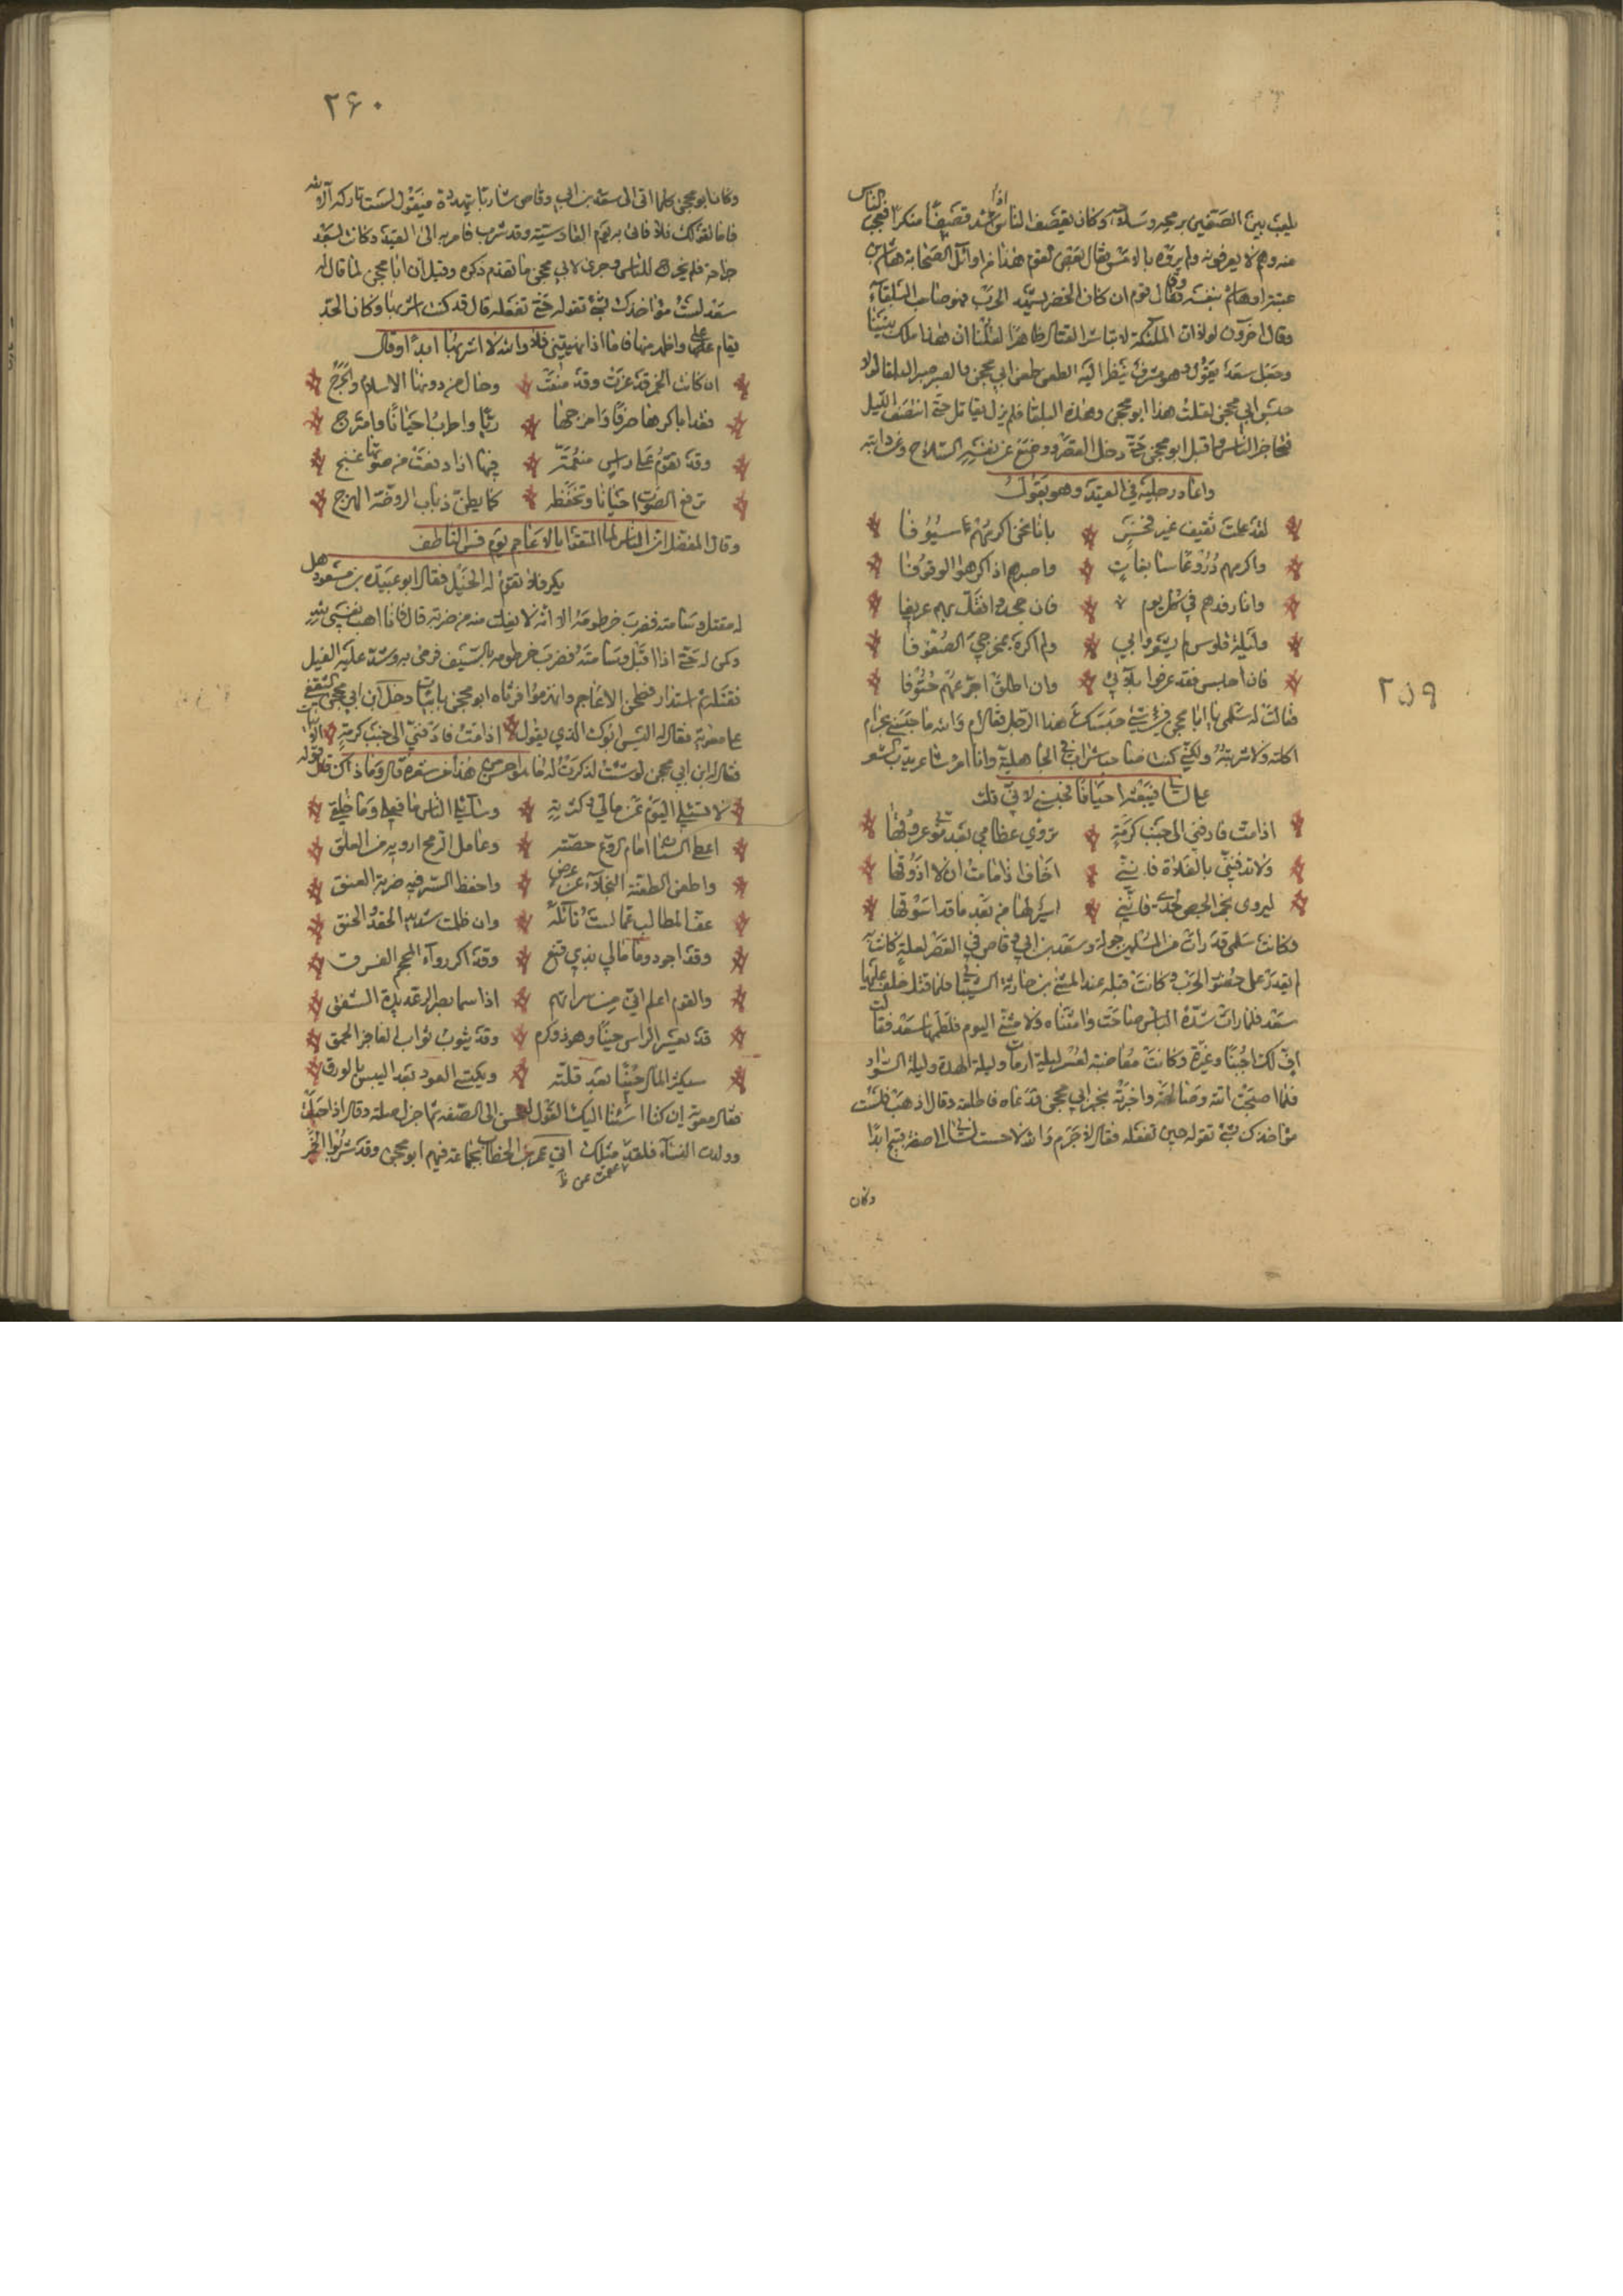 يلعب بين الصفين برمحه وسلاحه وكان يقصف الناس اذا شد قصفا منكرا فعجب الناس
منه وهم لا يعرفونه ولم يروه بالامس فقال بعض القوم هذا من اوائل اصحابه هاشم بن
عتبة او هاشم بنفسه وقال قوم ان كان الخضر يشهد الحرب فهو صاحب البلقاء
وقال اخرون لولا ان الملئكة لا تباشر القتال ظاهرا لقلنا ان هذا ملك بيننا
وجعل سعد يقول وهو مشرف ينظر اليه الطعن طعن ابي محجن والضبر ضبر البلقا لولا
حبس ابي محجن لقلت هذا ابو محجن وهذه البلقا فلم يزل يقاتل حتى انتصف الليل
فتحاجز الناس واقبل ابو محجن حتى دخل القصر ووضع عن نفسه السلاح وعن دابته
واعاد رجليه في القيد وهو يقول
لقد علمت ثقيف غير فخر بانا نحن اكرمهم سيوفا
واكرمهم دروعا سابغات واصبرهم اذا كرهوا الوقوفا
وانا رفدهم في كل يوم فان جحدوا فسل بهم عريفا
وليلة قادس لم يشعروا بي ولم اكره بمخرجي الصفوفا
فان احبس فقد عرفوا بلائي وان اطلق اجرعهم حتوفا
فقالت له سلمى يا ابا محجن في اي شئ حبسك هذا الرجل فقال ام والله ما حبسني بحرام
اكلته ولا شربته ولكني كنت صاحب شراب في الجاهلية وانا امرؤ شاعر يدب الشعر
على لساني فينفثه احيانا فحبسني لاني قلت
اذا مت فادفني الى جنب كرمة تروي عظامي بعد موتي عروقها
ولا تدفنني بالفلاة فانني اخاف اذا ما مت ان لا اذوقها
ليروى بخمر الحص لحدي فانني اسير لها من بعد ما قد اسوقها
وكانت سلمى قد رات من المسلمين جولة وسعد بن ابي وقاص في القصر لعلة كانت به
لم يقدر على حضور الحرب وكانت قبله عند المثنى بن حارثة الشيباني فلما قتل خلف عليها
سعد فلما رات شدة الباس صاحت وامثناه ولا مثنى لي اليوم فلطمها سعد فقالت
اف لك اجبنا وغيرة وكانت مغاضبة لسعد ليلة ارماث وليلة الهداة وليلة السواد
فلما اصبحت اتته وصالحته واخبرته بخبر ابي محجن فدعاه فاطلقه وقال اذهب فلست
مؤاخذك بشئ تقوله حين تفعله فقال لا جرم والله لا اجبت لساني الى صفة قبيح ابدا
وكان
٢٥٩
٢۶٠
وكان ابو محجن كلما اتى الى سعد بن ابي وقاص شاربا يتهدده فيقول لست تاركه الا لله
فاما لقولك فلا فاتى به يوم القادسية وقد شرب فامر به الى القيد وكانت بسعد
جراحة فلم يخرج للناس وجرى لابي محجن ما تقدم ذكره وقيل ان ابا محجن لما قال له
سعد لست مؤاخذك بشئ تقوله حتى تفعله قال قد كنت اشربها وكان الحد
يقام علي واطهر منها فاما اذا بهرجتني فلا والله لا اشربها ابدا وقال
ان كانت الخمر قد عزت وقد منعت وحال من دونها الاسلام والحرج
فقد اباكرها صرفا وامزجها ريا واطرب احيانا وامتزج
وقد تقوم على راسي منعمة فيها اذا رفعت من صوتها غنج
ترفع الصوت احيانا وتخفضه كما يطن ذباب الروضة الهزج
وقال المفضل ان الناس لما التقوا بالاعاجم يوم قس الناطف
يكر فلا تقوم له الخيل فقال ابو عبيدة بن مسعود هل
له مقتل وشامته فضرب خرطومه الا انه لا يفلت منه من ضربه قال فانا اهب نفسي لله
وكمن له حتى اذا اقبل وشامته فضرب خرطومه بالسيف فرمى به وشد عليه الفيل
فقتله ثم استدار فطحن الاعاجم وانهزموا فرثاه ابو محجن بابيات دخل ابن ابي محجن الثقفي
على معوية فقال له اليس ابوك الذي يقول اذا مت فادفني الى جنب كرمة البيت
فقال له ابن ابي محجن لو شئت لذكرت له ما هو احسن من هذا من شعره قال وما ذاك قال قوله
لا تسئلي اليوم عن مالي وكثرته وسائلي الناس ما فعلي وما خلقي
اعطي السنان امام الروع حصته وعامل الرمح ارويه من العلق
واطعن الطعنة النجلاء عن عرض واحفظ السر فيه ضربة العنق
عف المطالب عما لست نائله وان ظلمت شديد الحقد والحنق
وقد اجود وما مالي بذي فنع وقد اكر وراء المجحر الفرق
والقوم اعلم اني من سراتهم اذا سما بصر الرعديدة الشفق
قد يعسر الراس حينا وهو ذو كرم وقد يثوب ثواب العاجز الحمق
سيكثر المال حينا بعد قلته ويكتسي العود بعد اليبس بالورق
فقال معوية ان كنا اسئنا اليك القول لنحسنن لك الصفد ثم اجزل صلته وقال اذا
وولدت النساء فلتلد مثلك اتي عمر بن الخطاب بجماعة فيهم ابو محجن وقد شربوا الخمر